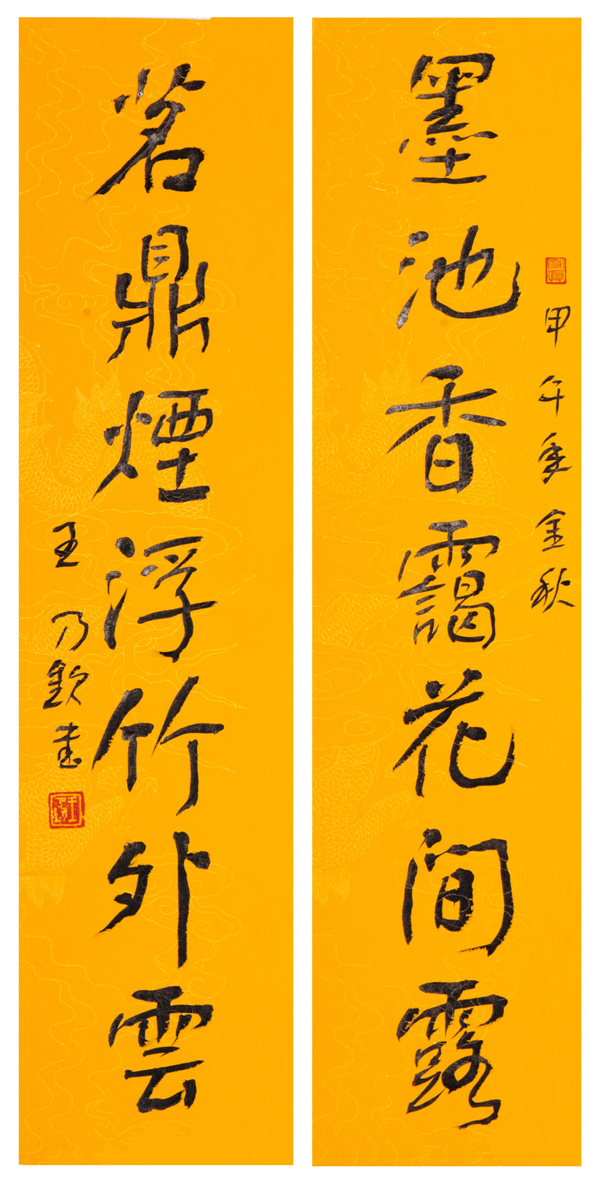 甲午年金秋
墨池香靄花间露
茗鼎煙浮竹外雲
王乃欽书